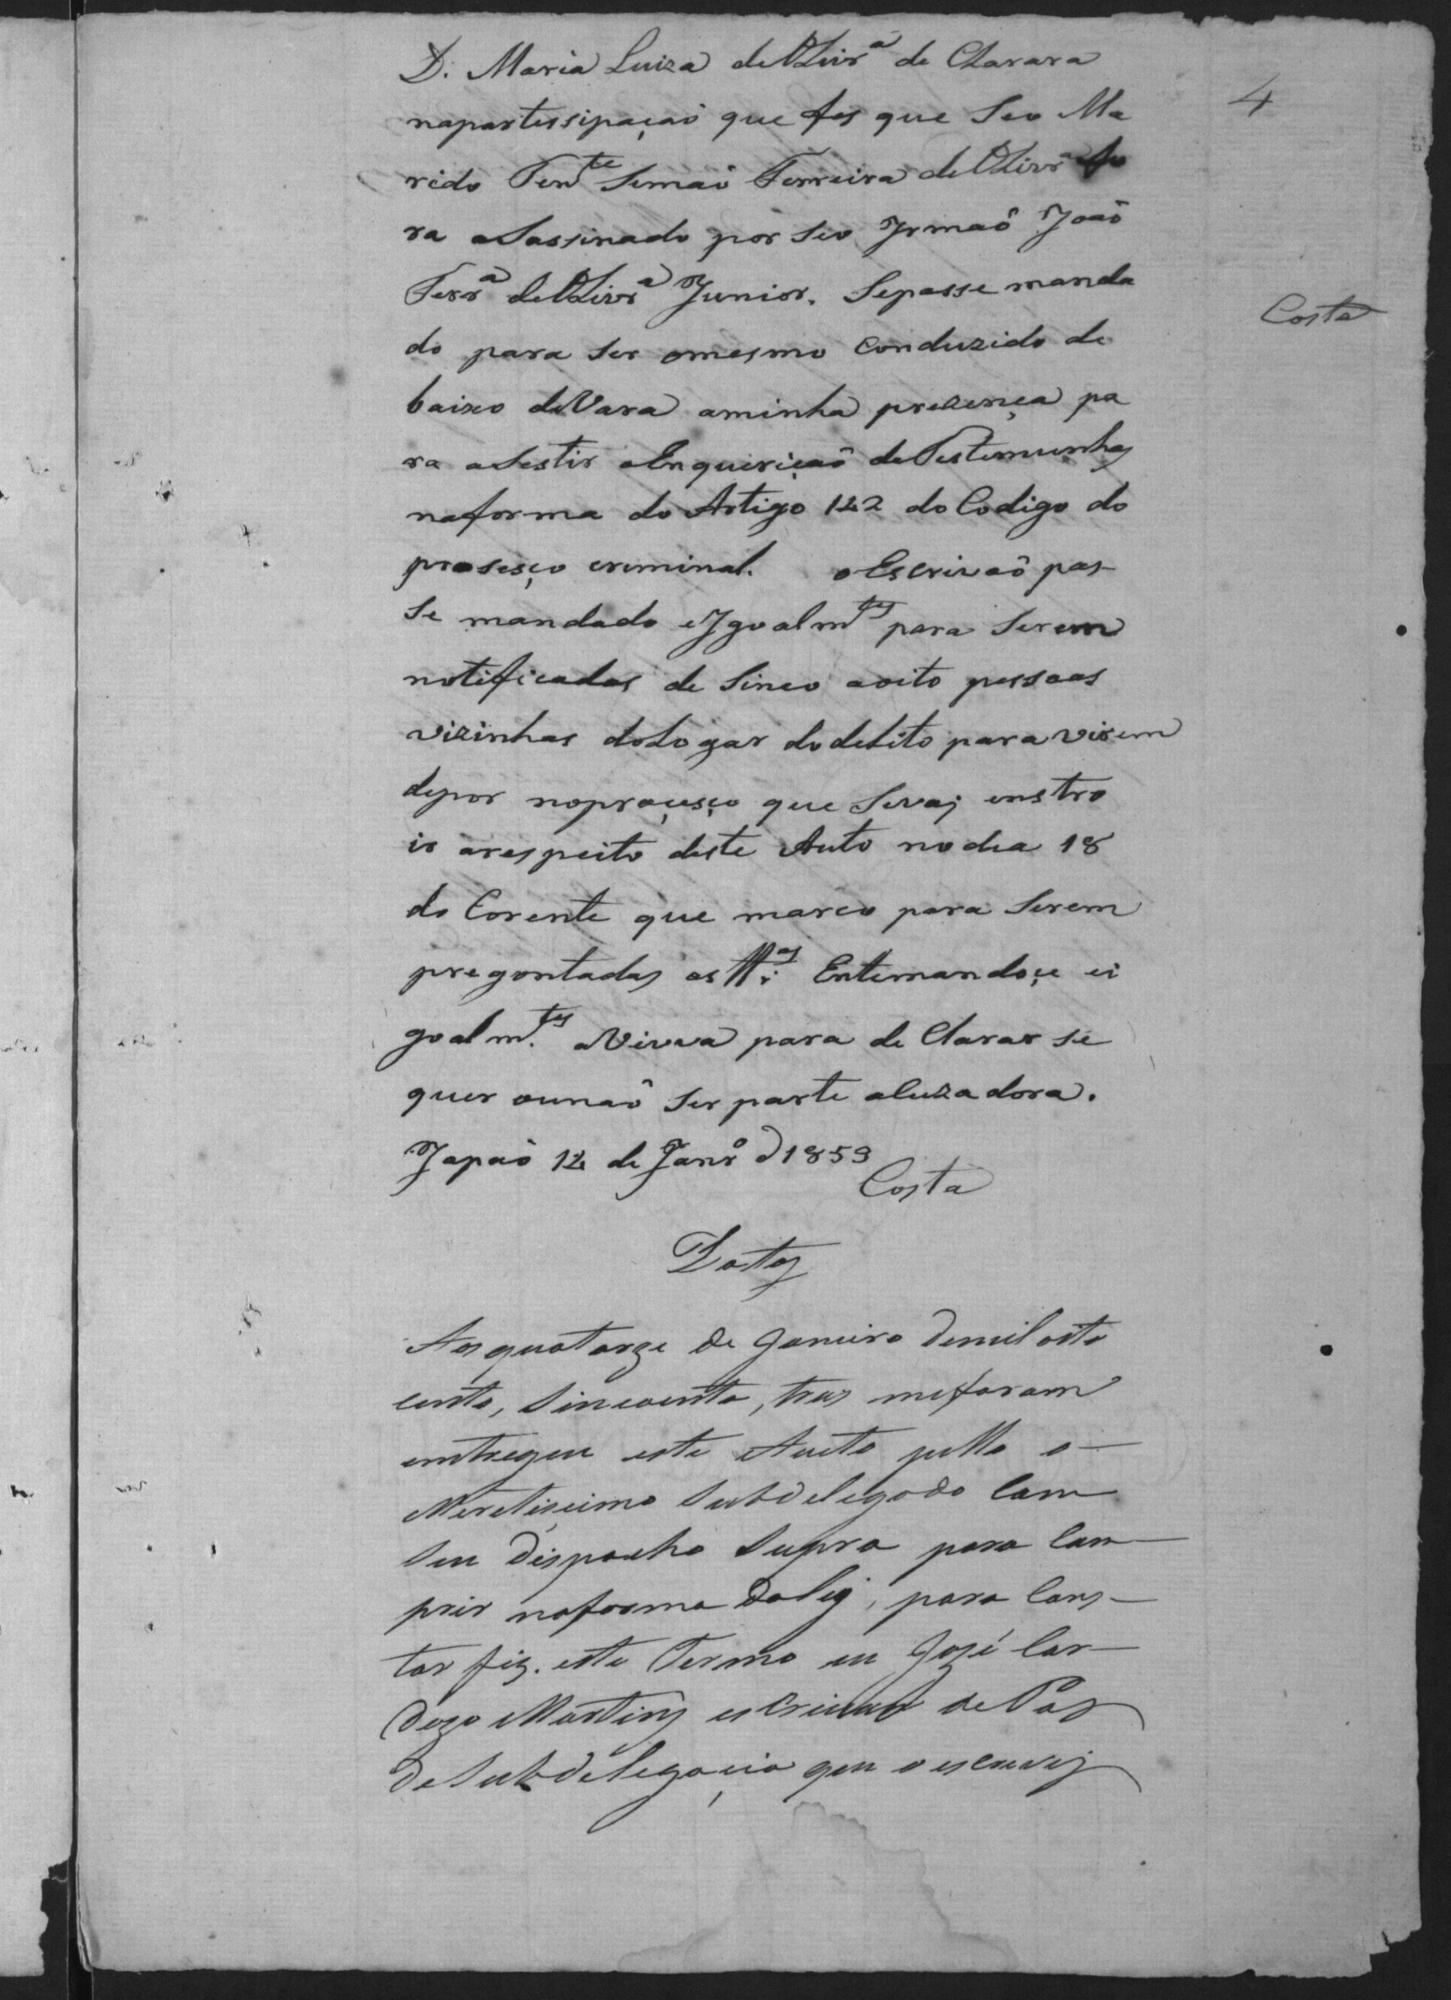 D. Maria Luiza de Olivrª de Clarara
napartessipaçaõ que fes que Seo Ma
rido Tente Semaõ Ferreira de Olivrª fo
ra aSassinado por Seo Irmaõ Joaõ
Ferrª de Olivrª Junior. Sepasse manda
do para Ser omesmo Conduzido de
baixo deVara aminha prezença pa
ra aSestir aEnqueriçaõ deTestemunhas
naforma do Artigo 142 do Codigo do
prosesço creminal. oEscrivaõ pas
Se mandado eIgoalmtes para Serem
notificadas de Sinco aoito pessoas
vizinhas doLogar dodelito para virem
depor noproçesço que Sevai enstro
ir arespeito deste Auto no dia 18
do Corente que marco para Serem
pregontadas as ttas Entemandoçe ei
goalm.tes aViuva para de Clarar se
quer ounaõ Ser parte acuzadora.
Japaõ 14 de Janrº d 1853
Costa
Data
Aos quatorze de Janeiro demil oito
cento, Sincoenta, tres meforam
emtregue este Auto pello o
Meretiçimo Subdelegado Com
Seu dispacho Supra para Com
prir naforma daley, para Cons
tar fiz. este Termo eu José Car
dozo Martins escrivaõ de Pas
deSubdelegaçia que o escrevij
4
Costa